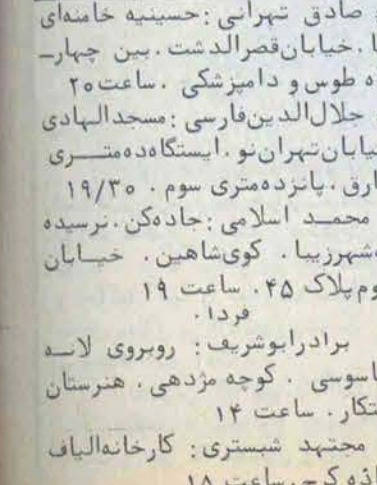 صادق تهرانی: حسینیه خامنه‌ای
ا. خیابان قصرالدشت. بین چهار-
ه طوس و دامپزشکی. ساعت ۲۰
جلال‌الدین فارسی: مسجد الهادی
یابان تهران نو. ایستگاه ده متـــری
ارق. پانزده متری سوم. ۱۹/۳۰
محمـد اسلامی: جاده کن. نرسیده
ه شهرزیبا. کوی شاهین. خیـابان
وم پلاک ۴۵. ساعت ۱۹
فردا.
برادر ابوشریف: روبروی لانـه
اسوسی. کوچه مژدهی. هنرستان
تکار. ساعت ۱۴
مجتهد شبستری: کارخانه الیاف
اده کرج. ساعت ۱۸